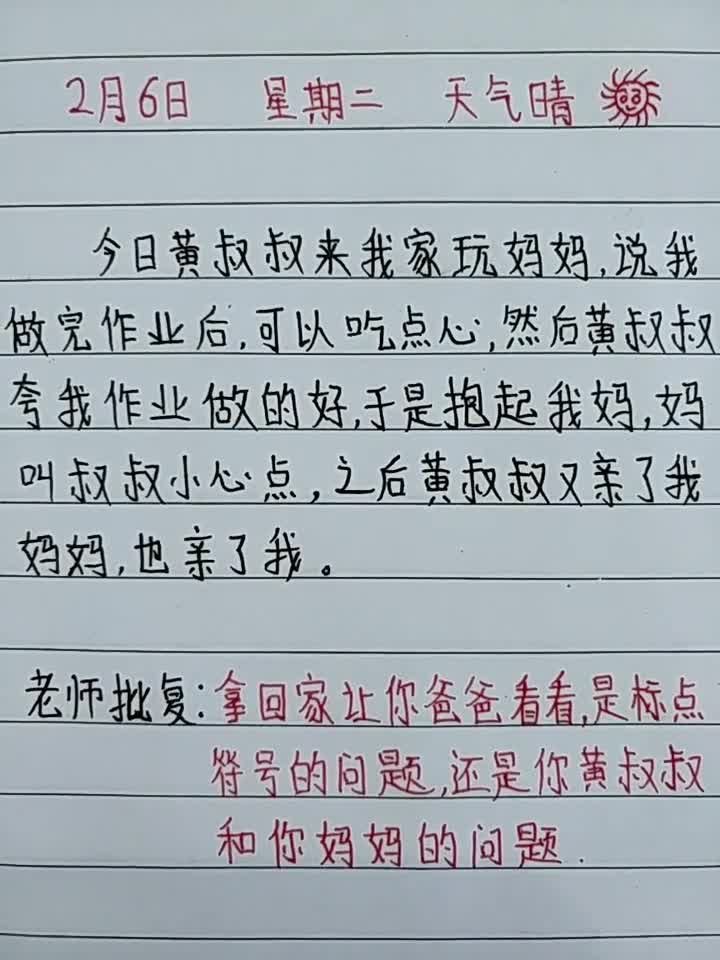 2月6日 星期二 天气晴
今日黄叔叔来我家玩妈妈,说我
做完作业后,可以吃点心,然后黄叔叔
夸我作业做的好,于是抱起我妈,妈
叫叔叔小心点,之后黄叔叔又亲了我
妈妈,也亲了我。
老师批复:拿回家让你爸爸看看,是标点
符号的问题,还是你黄叔叔
和你妈妈的问题.